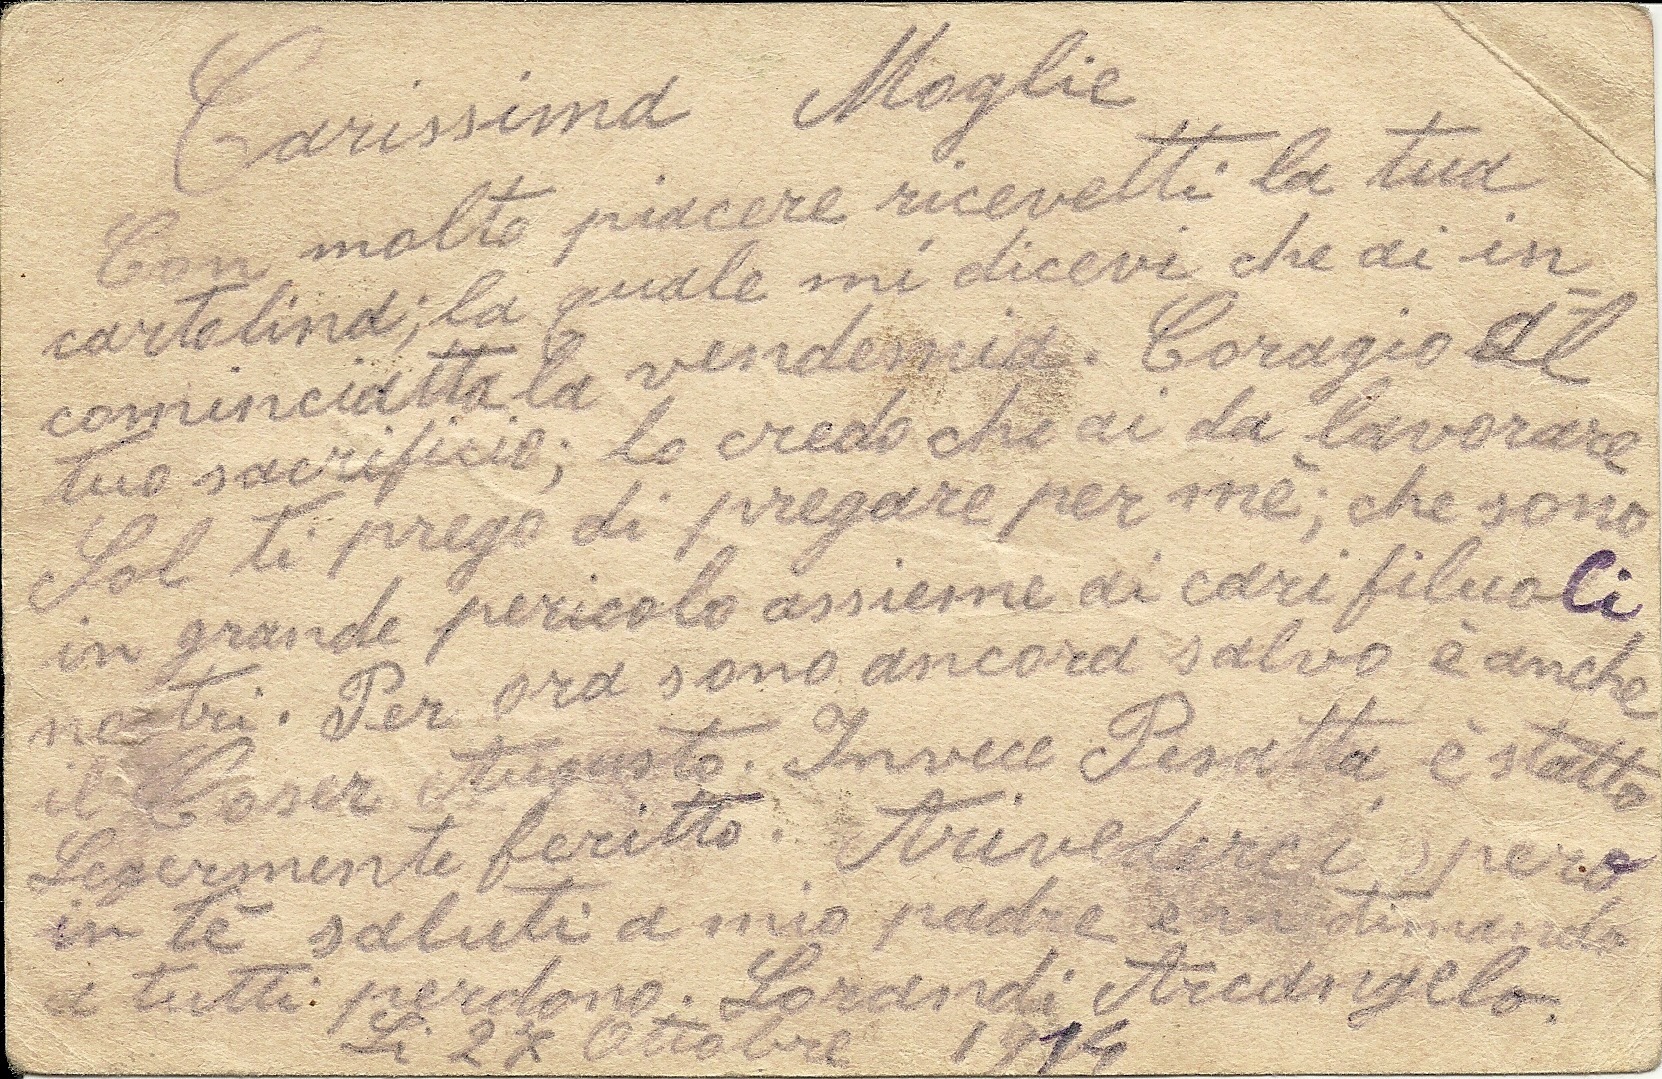 Carissima Moglie
Con molto piacere ricevetti la tua
cartolina; la quale mi dicevi che ai in
cominciatta la vendemia. Coragio al
tuo sacrificio; lo credo che ai da lavorare
Sol ti prego di pregare per mè; che sono
in grande pericolo assieme ai cari filuoli
nostri. Per ora sono ancora salvo è anche
il Coser Augusto. Invece Pesatta è statto
Legermente feritto. Arivederci spero
in tè saluti a mio padre e vi dimando
a tutti perdono. Lorandi Arcangelo.
Li 27 Ottobre 1914